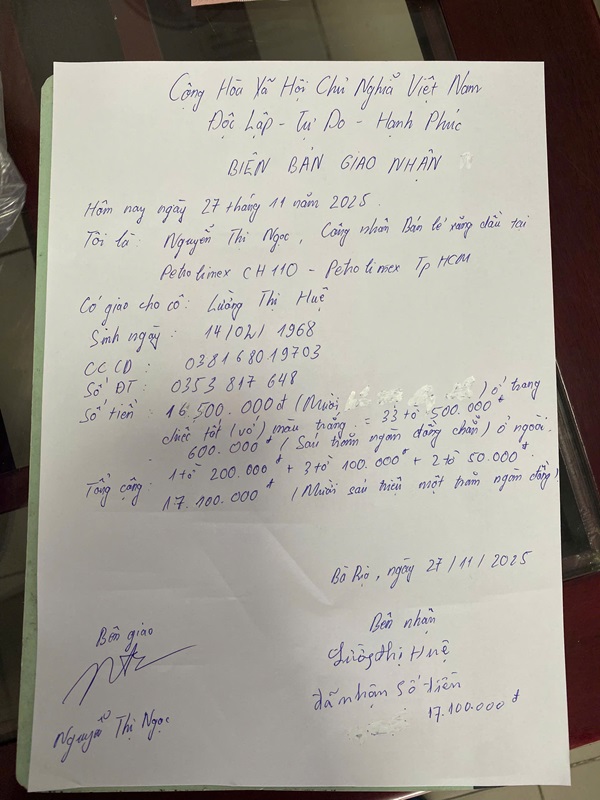 Cộng Hòa Xã Hội Chủ Nghĩa Việt Nam
Độc Lập - Tự Do - Hạnh Phúc
BIÊN BẢN GIAO NHẬN
Hôm nay ngày 27 tháng 11 năm 2025.
Tôi là: Nguyễn Thị Ngọc, Công nhân Bán lẻ xăng dầu tại
Petrolimex CH 110 - Petrolimex Tp HCM
Có giao cho cô: Lường Thị Huệ
Sinh ngày: 14/02/1968
CCCD: 038168019703
Số ĐT: 0353 817 648
Số tiền: 16.500.000đ (Mười) ở trong
chiếc tất (vớ) màu trắng = 33 tờ 500.000đ
- 600.000đ (Sáu trăm ngàn đồng chẵn) ở ngoài.
1 tờ 200.000đ + 3 tờ 100.000đ + 2 tờ 50.000đ.
Tổng cộng: 17.100.000đ (Mười sáu triệu một trăm ngàn đồng)
Bà Rịa, ngày 27/11/2025
Bên giao
Nguyễn Thị Ngọc
Bên nhận
Lường thị Huệ
đã nhận số tiền
17.100.000đ